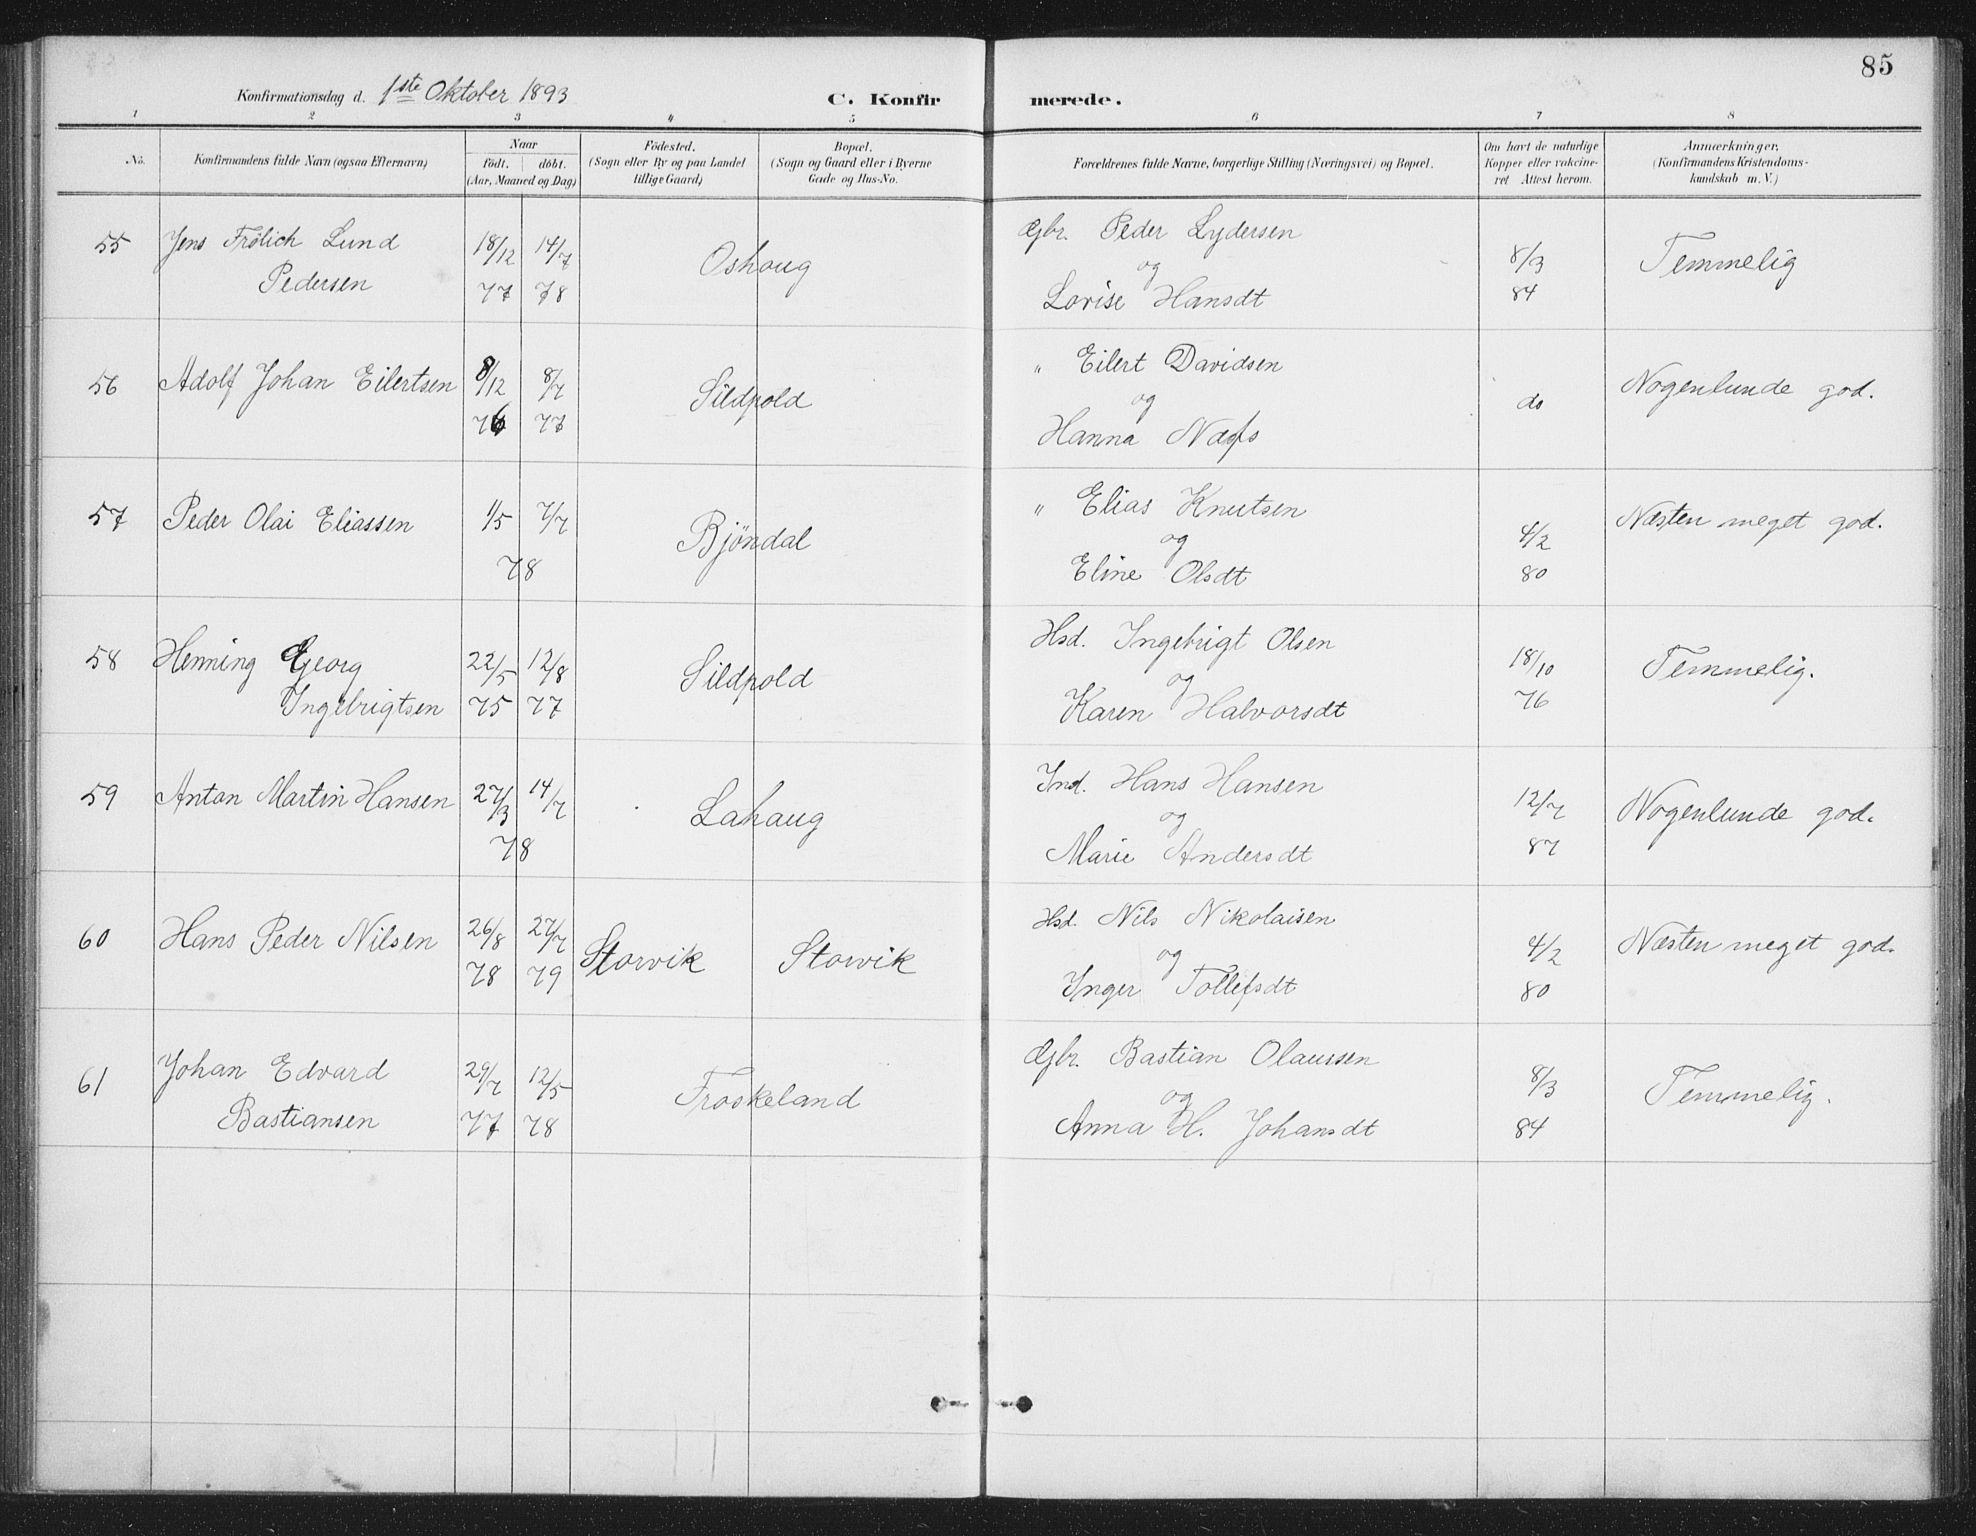 85
Konfirmationsdag d. 1ste Oktober 1893
C. Konfirmerede.
1 2 3 4 5 6 7 8
No.
Konfirmandens fulde Navn (ogsaa Efternavn)
Naar
födt. döbt.
(Aar, Maaned og Dag)
Födested.
(Sogn eller By og paa Landet
tillige Gaard)
Bopæl.
(Sogn og Gaard eller i Byerne
Gade og Hus-No.
Forældrenes fulde Navne, borgerlige Stilling (Næringsvei) og Bopæl.
Om havt de naturlige
Kopper eller vakcine-
ret Attest herom.
Anmærkninger.
(Konfirmandens Kristendoms-
kundskab m. V.)
55 Jens Frölich Lund
Pedersen
18/12 14/7
77 78
Oshaug
Gbr. Peder Lydersen
og
Lovise Hansdt
8/3
84
Temmelig
56 Adolf Johan Eilertsen
8/12 8/7
76 77
Sildpold
" Eilert Davidsen
og
Hanna Næfs
do
Nogenlunde god.
57 Peder Olai Eliassen
1/5 7/7
78
Bjöndal
" Elias Knutsen
og
Eline Olsdt
4/2
80
Næsten meget god.
58 Henning Georg
Ingebrigtsen
22/5 12/8
75 77
Sildpold
Hsd. Ingebrigt Olsen
og
Karen Halvorsdt
18/10
76
Temmelig.
59 Anton Martin Hansen
27/3 14/7
78
Lahaug
Ind. Hans Hansen
og
Marie Andersdt
12/7
87
Nogenlunde god.
60 Hans Peder Nilsen
26/8 27/7
78 79
Storvik Storvik
Hsd. Nils Nikolaisen
og
Inger Tollefsdt
4/2
80
Næsten meget god.
61 Johan Edvard
Bastiansen
29/7 12/5
77 78
Froskeland
Gbr. Bastian Olaussen
og
Anna H. Johansdt
8/3
84
Temmelig.